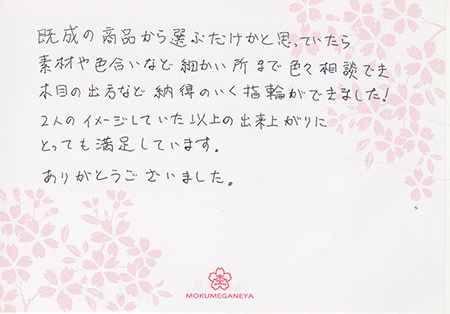 既成の商品から選ぶだけかと思っていたら
素材や色合いなど細かい所まで色々相談でき
木目の出方など納得のいく指輪ができました!
2人のイメージしていた以上の出来上がりに
とっても満足しています.
ありがとうございました。
MOKUMEGANEYA